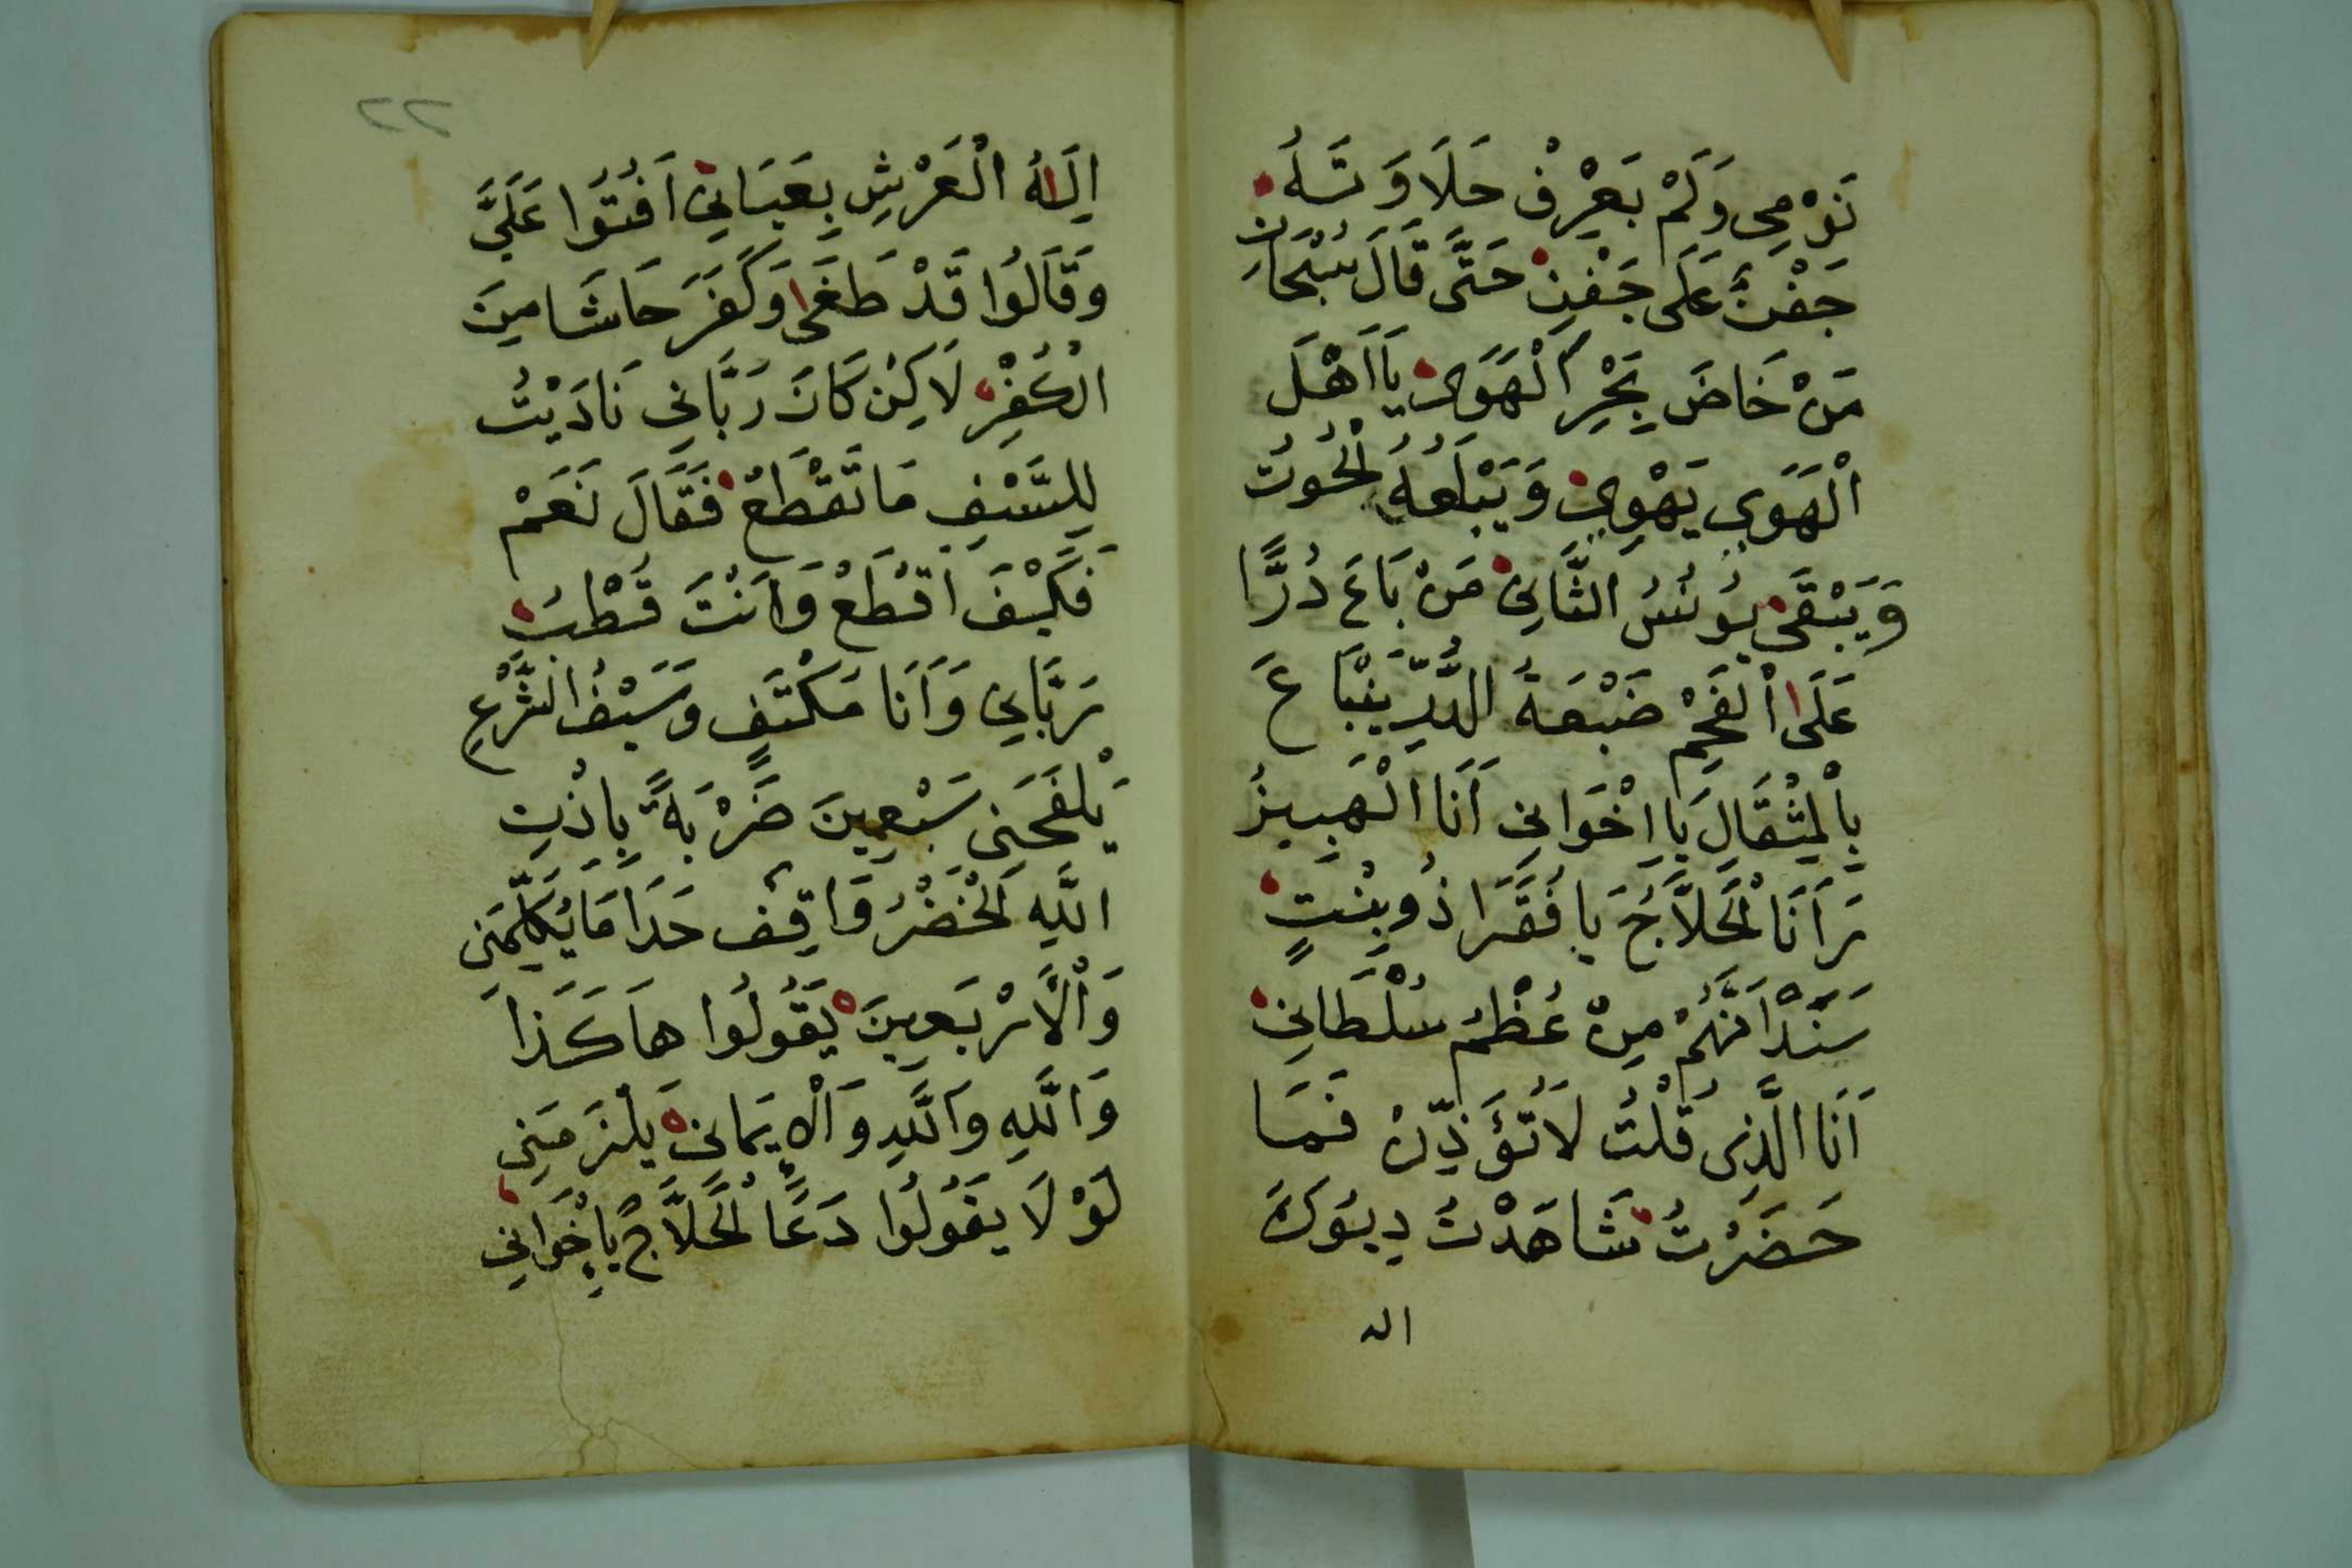 نَوْمِي وَلَمْ يَعْرِفْ حَلَاوَتَهُ
جَفْنٌ عَلَى جَفْنِ حَتَّى قَالَ سُبْحَانِ
مَنْ خَاضَ بَحْرِ الْهَوَى يَا اَهْلَ
الْهَوَى يَهْوِى وَيَبْلَعُهُ الْحُوتُ
وَيَبْقَى يُونُسُ الثَّانِي مَنْ بَاعَ دُرًّا
عَلَى الْفَحِمْ ضَيْعَةُ الدُّرِّ يَنْبَاعَ
بِالْمِثْقَالَ يَا اخْوَانِي اَنَا الْهَبِيزُ
نَرَ اَنَا الْحَلَّاجُ يَا فُقَرَا ذُوبِنْتٍ
سَنْدَانَهُمْ مِنْ عُظْمُ سُلْطَانِي
اَنَا الَّذِي قُلْتُ لَا تُؤَذِّنْ فَمَا
حَضَرْتُ شَاهَدْتُ دِيُوكَ
اله
٢٢
اِلَاهُ الْعَرْشِ بِعَيَانِي اَفْتُوا عَلَيَّ
وَقَالُوا قَدْ طَغَى وَكَفَرَ حَاشَا مِنَ
الْكُفْرِ لَاكِنْ كَانَ رَبَّانِي نَادَيْتُ
لِلسَّيْفِ مَا تَقْطَعُ فَقَالَ نَعَمْ
فَكَيْفَ اَقْطَعْ وَاَنْتَ قُطْبُ
رَبَّانِي وَاَنَا مَكْتَفٍ وَسَيْفُ الشَّرْعِ
يَلْفَحَنِي سَبْعِينَ ضَرْبَةً بِاذْنِ
اللَّهِ الْخَضْرُ وَاقِف حَدَا مَا يُكَلِّمَنِي
وَالْاَرْبَعِينَ يَقُولُوا هَاكَذَا
وَاللَّهِ وَاللَّهِ وَالْاِيمَانِ يَلْزَمَنِي
لَوْلَا يَقُولُوا دَعًا الْحَلَّاجُ يَاِخْوَانِي